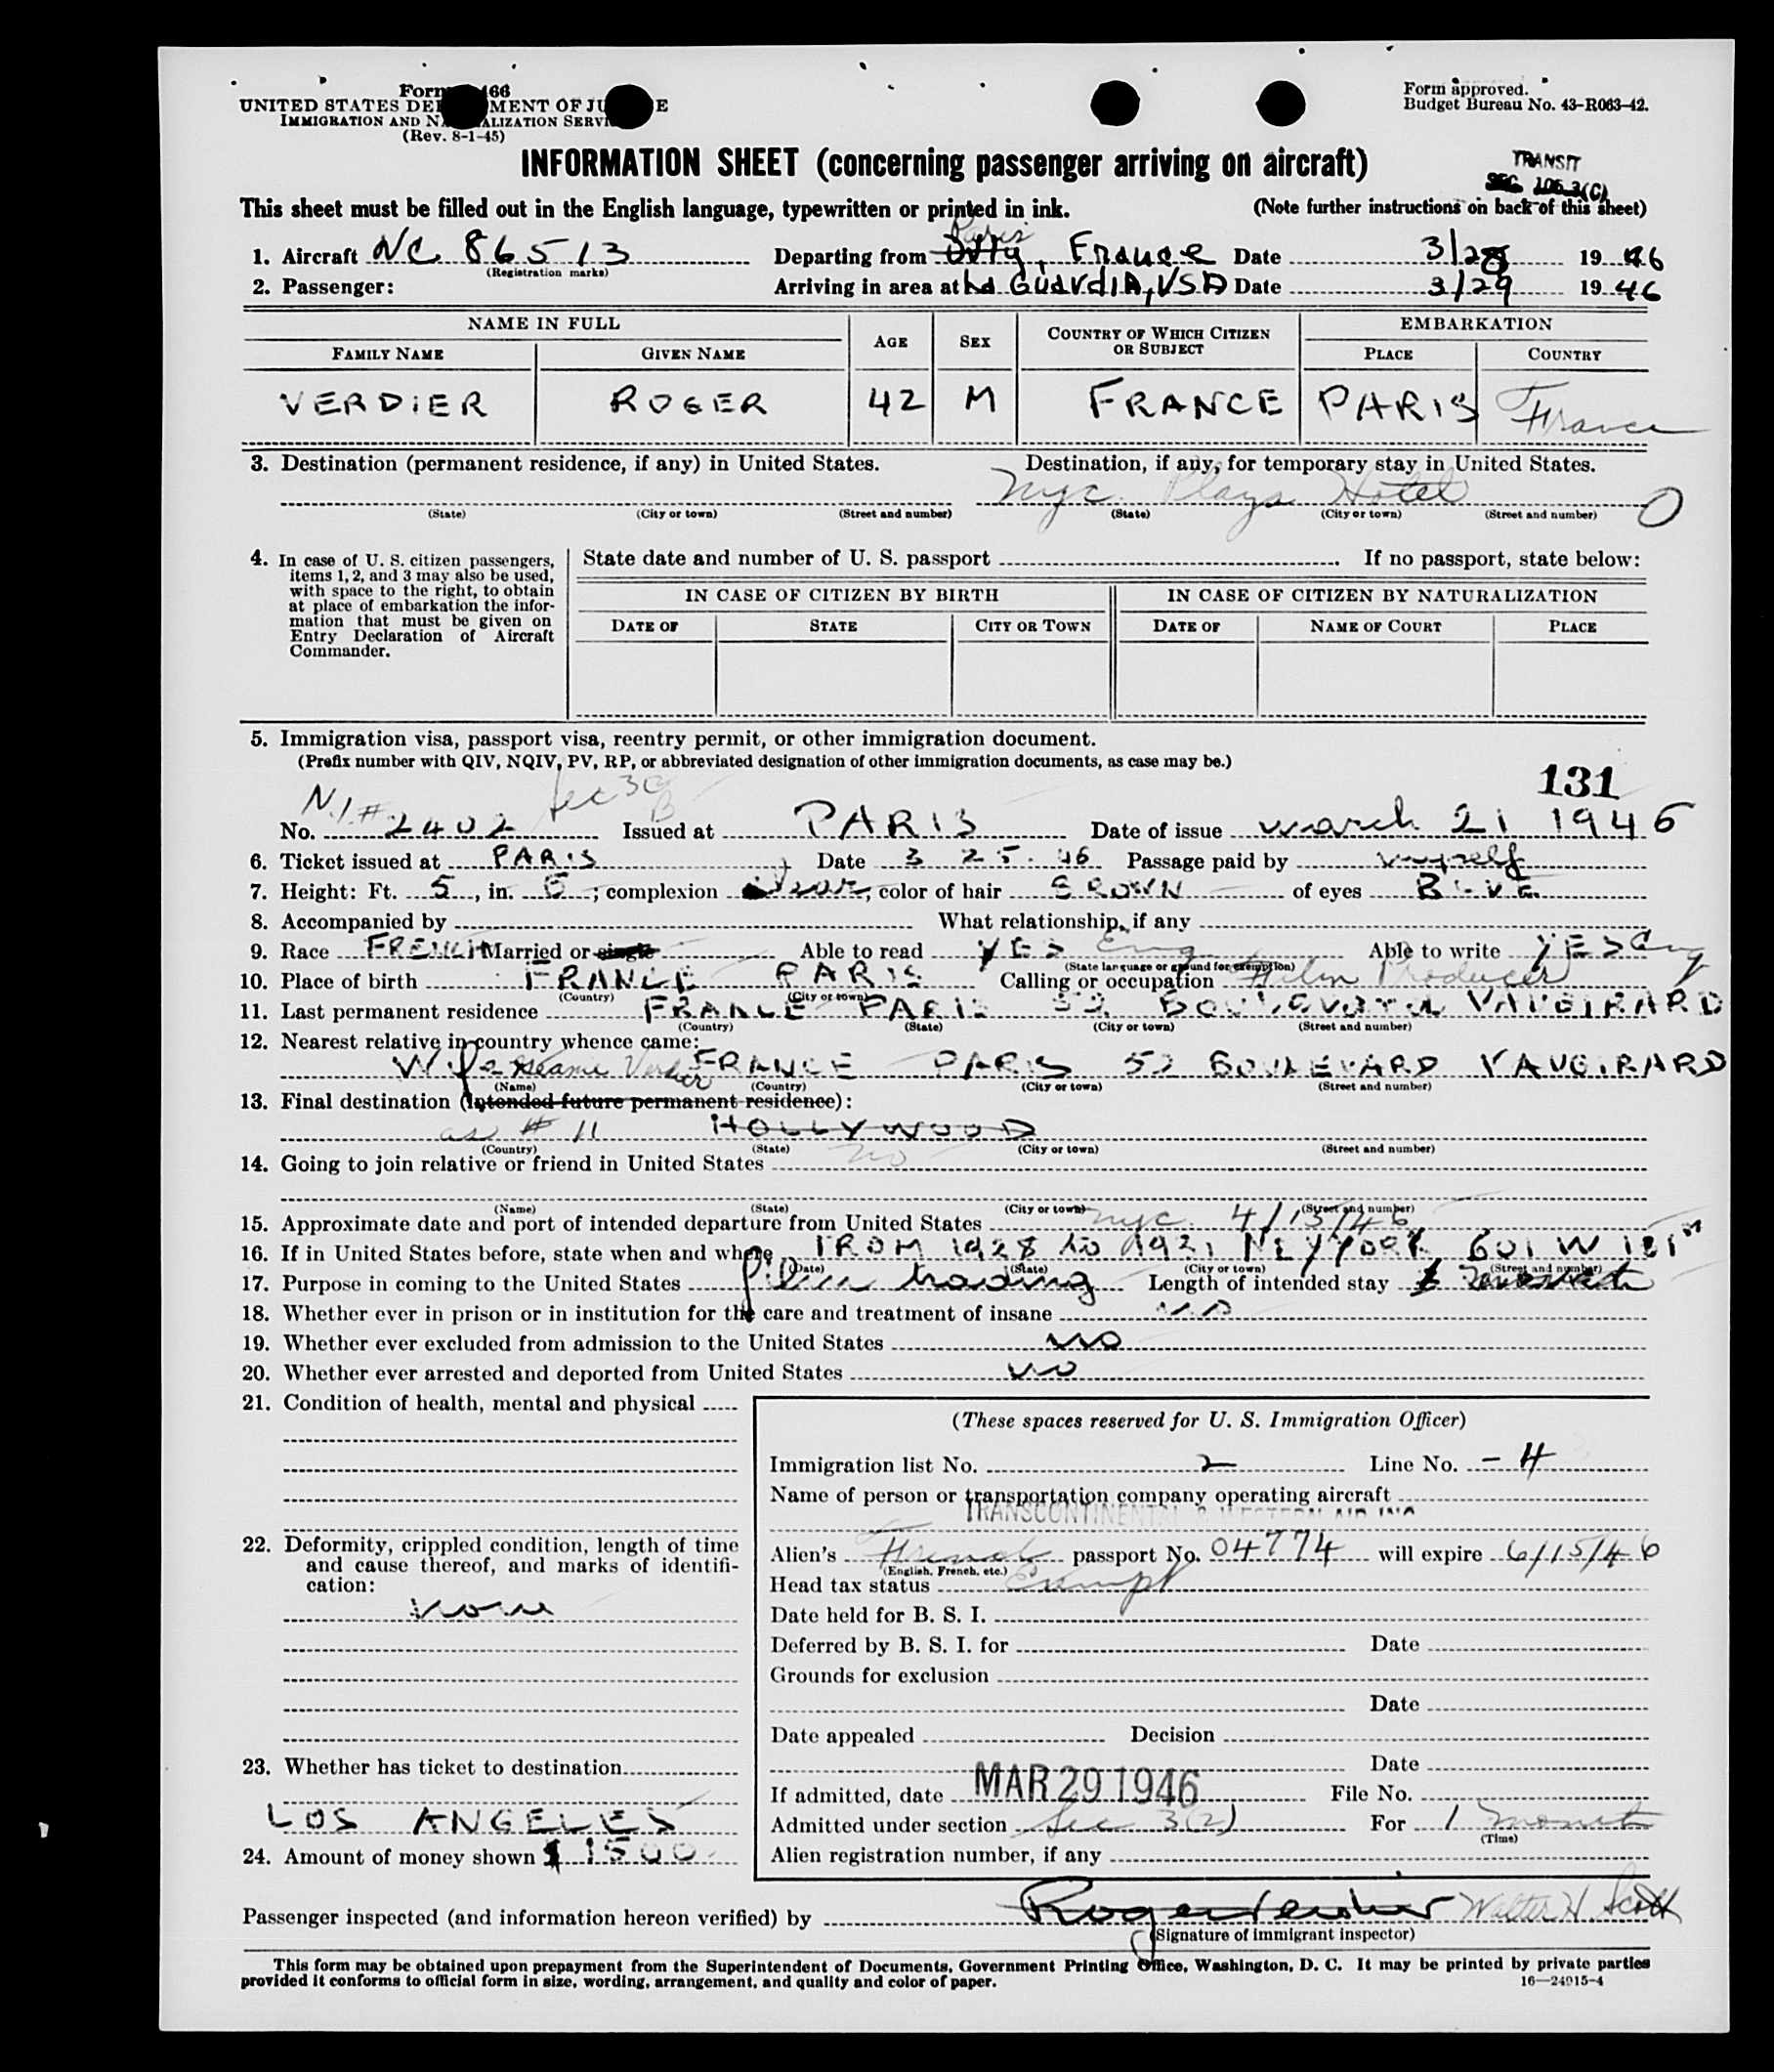 Form 466
UNITED STATES DEPARTMENT OF JUSTICE
IMMIGRATION AND NATURALIZATION SERVICE
(Rev. 8-1-45)
Form approved.
Budget Bureau No. 43-R063-42.
INFORMATION SHEET (concerning passenger arriving on aircraft)
TRANSIT
SEC. 106.3(C)
This sheet must be filled out in the English language, typewritten or printed in ink. (Note further instructions on back of this sheet)
Paris
1. Aircraft NC 86513 Departing from Orly, France Date 3/28 1946
(Registration marks)
2. Passenger: Arriving in area at La Guardia, USA Date 3/29 1946
NAME IN FULL AGE SEX COUNTRY OF WHICH CITIZEN OR SUBJECT EMBARKATION
FAMILY NAME GIVEN NAME PLACE COUNTRY
VERDIER ROGER 42 M FRANCE PARIS France
3. Destination (permanent residence, if any) in United States. Destination, if any, for temporary stay in United States.
NYC Plaza Hotel
(State) (City or town) (Street and number) (State) (City or town) (Street and number)
4. In case of U. S. citizen passengers, items 1, 2, and 3 may also be used, with space to the right, to obtain at place of embarkation the information that must be given on Entry Declaration of Aircraft Commander.
State date and number of U. S. passport If no passport, state below:
IN CASE OF CITIZEN BY BIRTH IN CASE OF CITIZEN BY NATURALIZATION
DATE OF STATE CITY OR TOWN DATE OF NAME OF COURT PLACE
5. Immigration visa, passport visa, reentry permit, or other immigration document.
(Prefix number with QIV, NQIV, PV, RP, or abbreviated designation of other immigration documents, as case may be.)
131
N.I.# Sec 3
No. 2402 Issued at PARIS Date of issue march 21 1946
6. Ticket issued at PARIS Date 3 25. 46 Passage paid by myself
7. Height: Ft. 5, in. 6; complexion clear, color of hair BROWN of eyes BLUE
8. Accompanied by What relationship, if any
9. Race FRENCH Married or single Able to read YES Eng Able to write YES Eng
(State language or ground for exemption)
10. Place of birth FRANCE PARIS Calling or occupation Film Producer
(Country) (City or town)
11. Last permanent residence FRANCE PARIS 52 BOULEVARD VAUGIRARD
(Country) (State) (City or town) (Street and number)
12. Nearest relative in country whence came:
Wife Verdier FRANCE PARIS 52 BOULEVARD VAUGIRARD
(Name) (Country) (City or town) (Street and number)
13. Final destination (Intended future permanent residence):
as # 11 HOLLYWOOD
(Country) (State) (City or town) (Street and number)
14. Going to join relative or friend in United States no
(Name) (State) (City or town) (Street and number)
15. Approximate date and port of intended departure from United States NYC. 4/15/46
16. If in United States before, state when and where FROM 1928 to 1921 NEW YORK 601 W
(Date) (State) (City or town) (Street and number)
17. Purpose in coming to the United States film trading Length of intended stay
18. Whether ever in prison or in institution for the care and treatment of insane NO
19. Whether ever excluded from admission to the United States no
20. Whether ever arrested and deported from United States no
21. Condition of health, mental and physical
22. Deformity, crippled condition, length of time and cause thereof, and marks of identification:
none
23. Whether has ticket to destination
LOS ANGELES
24. Amount of money shown $ 1500
(These spaces reserved for U. S. Immigration Officer)
Immigration list No. 2 Line No. - 4
Name of person or transportation company operating aircraft
TRANSCONTINENTAL & WESTERN AIR INC
Alien's French passport No. 04774 will expire 6/15/46
(English, French, etc.)
Head tax status Exempt
Date held for B. S. I.
Deferred by B. S. I. for Date
Grounds for exclusion
Date
Date appealed Decision
Date
If admitted, date MAR 29 1946 File No.
Admitted under section Sec 3(2) For 1 month
(Time)
Alien registration number, if any
Passenger inspected (and information hereon verified) by Roger Verdier Walter H. Scott
(Signature of immigrant inspector)
This form may be obtained upon prepayment from the Superintendent of Documents, Government Printing Office, Washington, D. C. It may be printed by private parties
provided it conforms to official form in size, wording, arrangement, and quality and color of paper.
16—24915-4